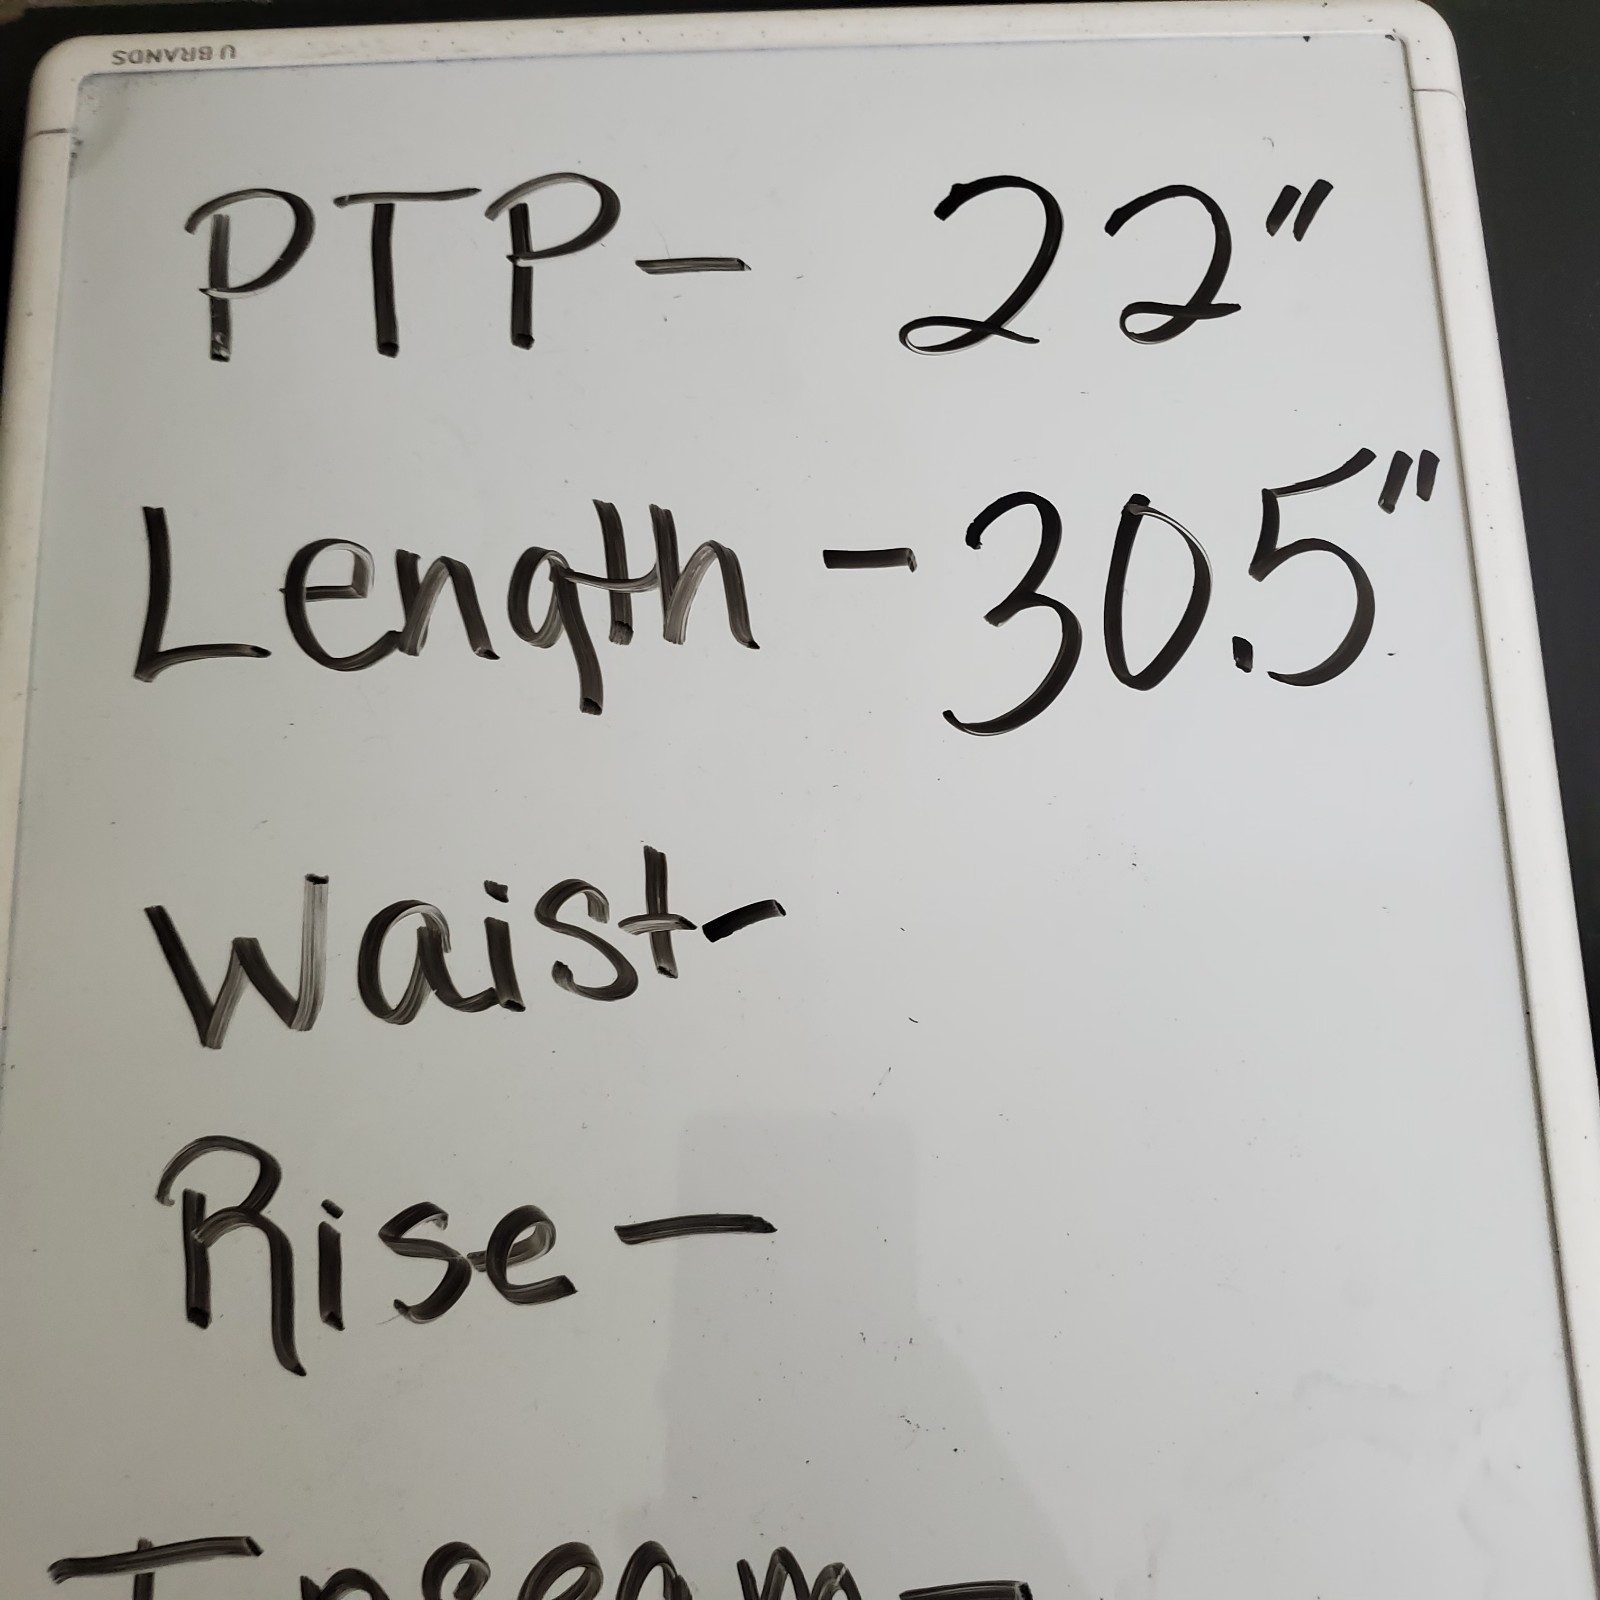 U BRANDS
PTP- 22"
Length - 30.5"
Waist-
Rise -
Inseam -